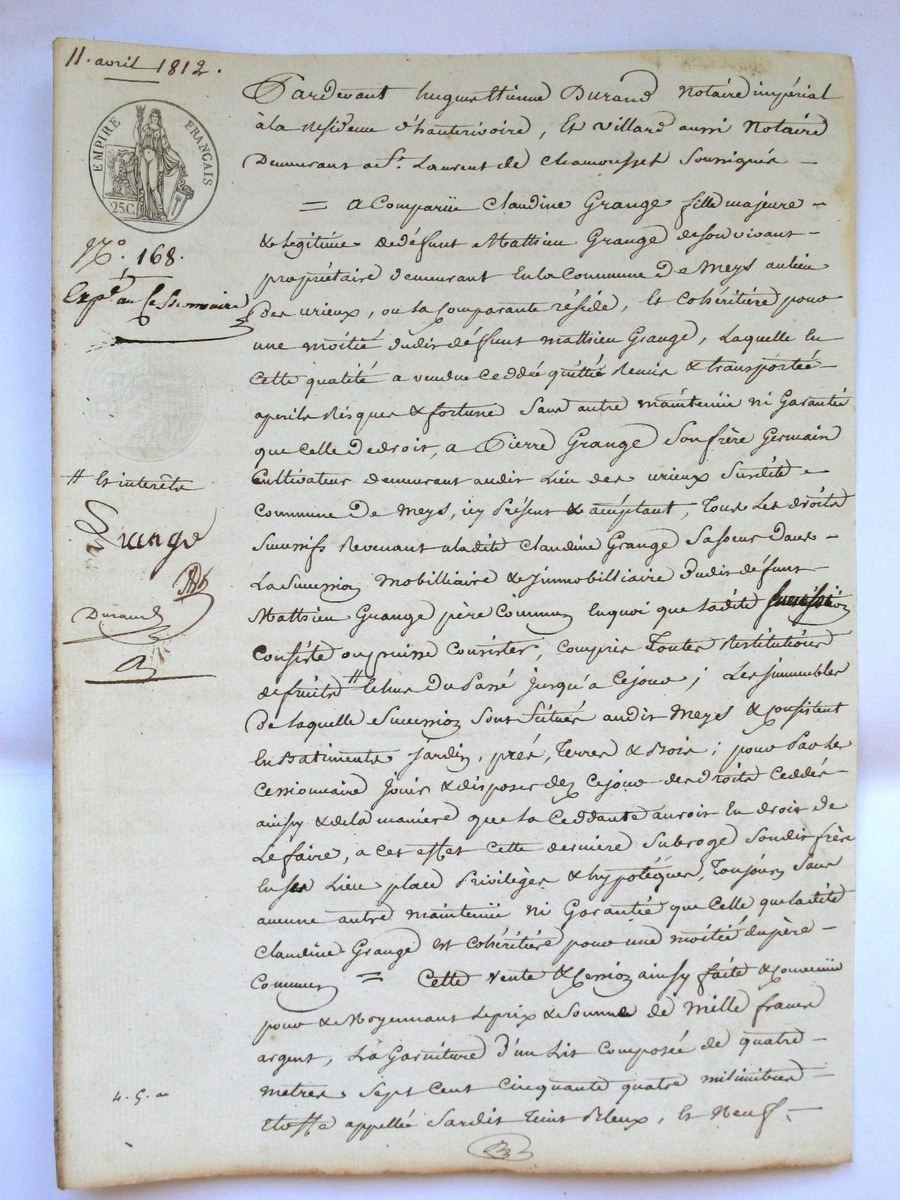 11. avril 1812.
EMPIRE FRANÇAIS
25C.
N.º 168.
Expé au Cessionnaire
// et interêts
Grange
Durand
Pardevant hugues Etienne Durand Notaire impérial
à la Residence d'hauterivoire, et Villard aussi Notaire
Demeurant a St. Laurent de Chamousset Soussignés —
= a Comparüe Claudine Grange fille majeure —
& Légitime de défunt Mathieu Grange de son vivant
propriétaire demeurant en la Commune De Meys au lieu
Des urieux, ou la Comparante réside, et Cohéritière pour
une moitié dudit défunt mathieu Grange, Laquelle en
Cette qualité a vendue Ceddée quittée Remise & transportée
a perils Risques & fortune Sans autre maintenüe ni Garantie
que Celle De droit, a Pierre Grange Son frère Germain
Cultivateur demeurant audit Lieu des urieux Susdite
Commune De Meys, icy Présent & acceptant, Tous Les droits
Successifs Revenant a ladite Claudine Grange Sa soeur Dans
La Succession Mobilliaire & Immobilliaire dudit défunt
Mathieu Grange père Commun en quoi que ladite Succession
Consiste ou puisse Consister, Compris Toutes Restitutions
de fruits // échus Du Passé jusqu'à Ce jour; Les immeubles
De laquelle Succession Sont Situés audit Meys & Consistent
En Batiments jardin, prés, Terres & Bois; pour Par le
Cessionnaire Jouir & disposer dez Ce jour des droits Ceddés
ainsy & de la maniere que la Ceddante auroit En droit de
Le faire, a cet effet Cette derniere Subroge Sondit frère
En ses Lieu place Privilèges & hypotèques, Toujours Sans
aucune autre maintenüe ni Garantie que Celle que ladite
Claudine Grange est Cohéritière pour une moitié du père —
Commun = Cette Vente & Cession ainsy faite & Convenüe
pour & Moyennant le prix & Somme de Mille francs
argent, La Garniture d'un Lit Composée de quatre —
metres Sept Cent Cinquante quatre milimètres —
Etoffe appellée Sardis Teint Bleux, et Neuf, —